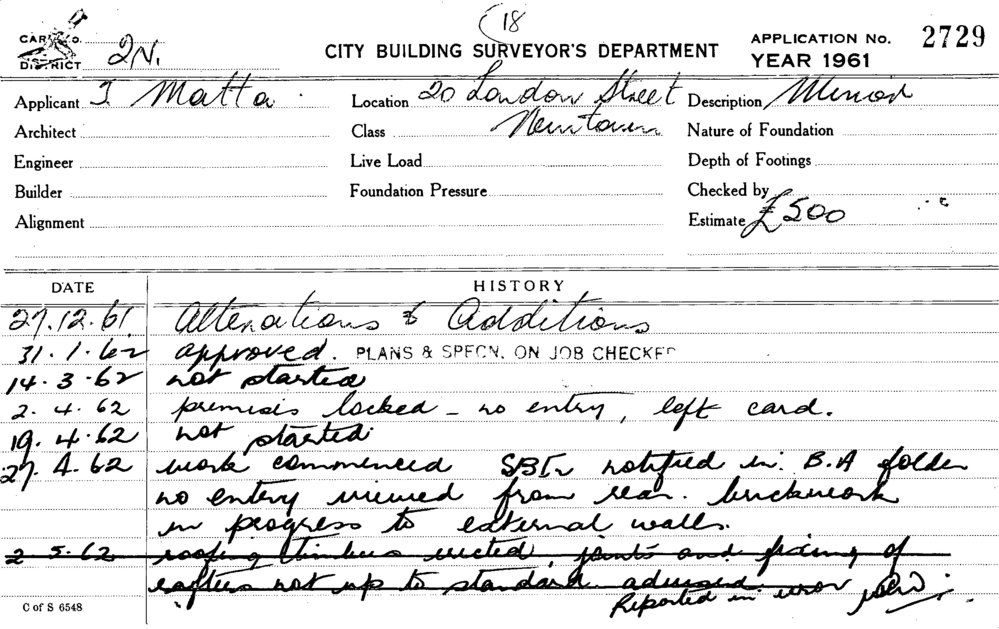 18
CAR
DISTRICT 2N.
CITY BUILDING SURVEYOR'S DEPARTMENT
APPLICATION No. 2729
YEAR 1961
Applicant J Matta Location 20 London Street Description Minor
Architect Class Newtown Nature of Foundation
Engineer Live Load Depth of Footings
Builder Foundation Pressure Checked by
Alignment Estimate £500
DATE HISTORY
27.12.61 Alterations & Additions
31.1.62 approved. PLANS & SPECN. ON JOB CHECKED
14.3.62 not started
2.4.62 premises locked – no entry, left card.
19.4.62 not started
27.4.62 work commenced SBI notified in B.A folder
no entry viewed from rear. brickwork
in progress to external walls.
2 5.62 roofing timbers erected, joints and fixing of
rafters not up to standard advised
Reported in error
C of S 6548